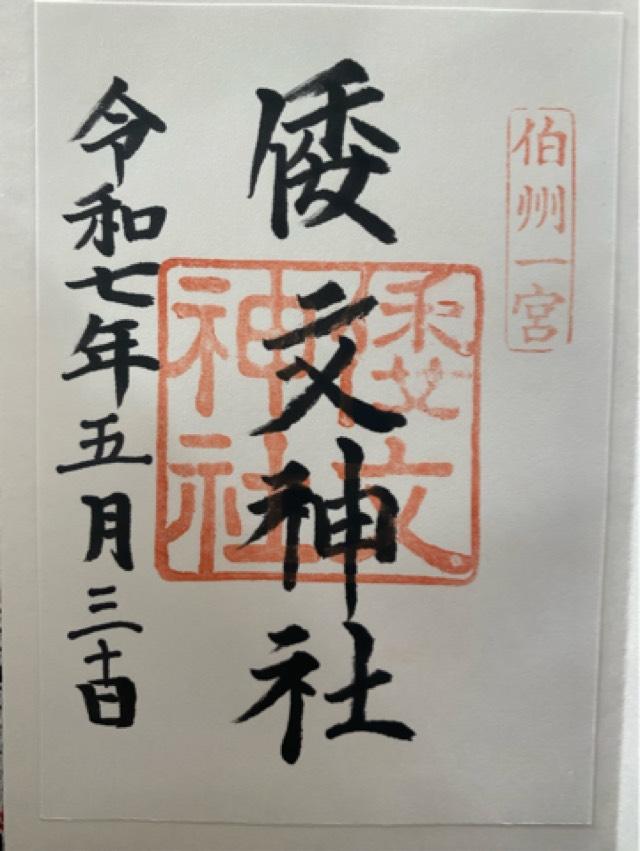 伯州一宮
倭文神社
倭文神社
令和七年五月三十日